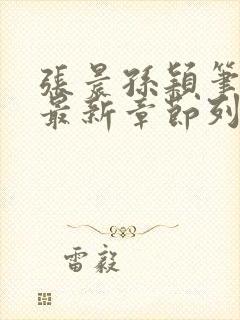 張晨孫穎筆
最新章節列
雷毅